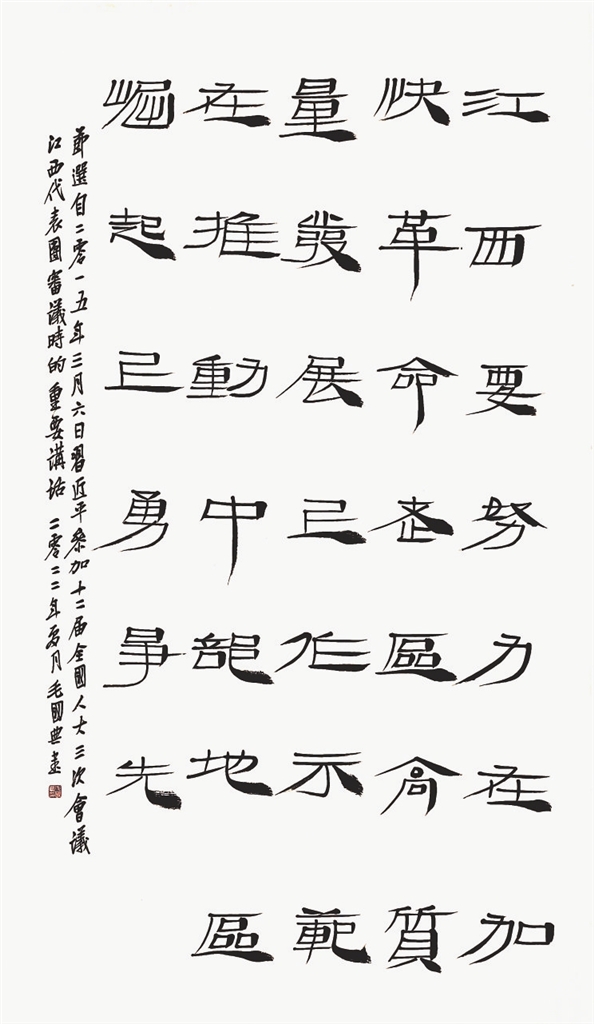 江西要努力在加
快革命老區高質
量發展上作示範
在推動中部地區
崛起上勇爭先
節選自二零一五年三月六日習近平參加十二屆全國人大三次會議
江西代表團審議時的重要講話 二零二二年夏月毛國典書